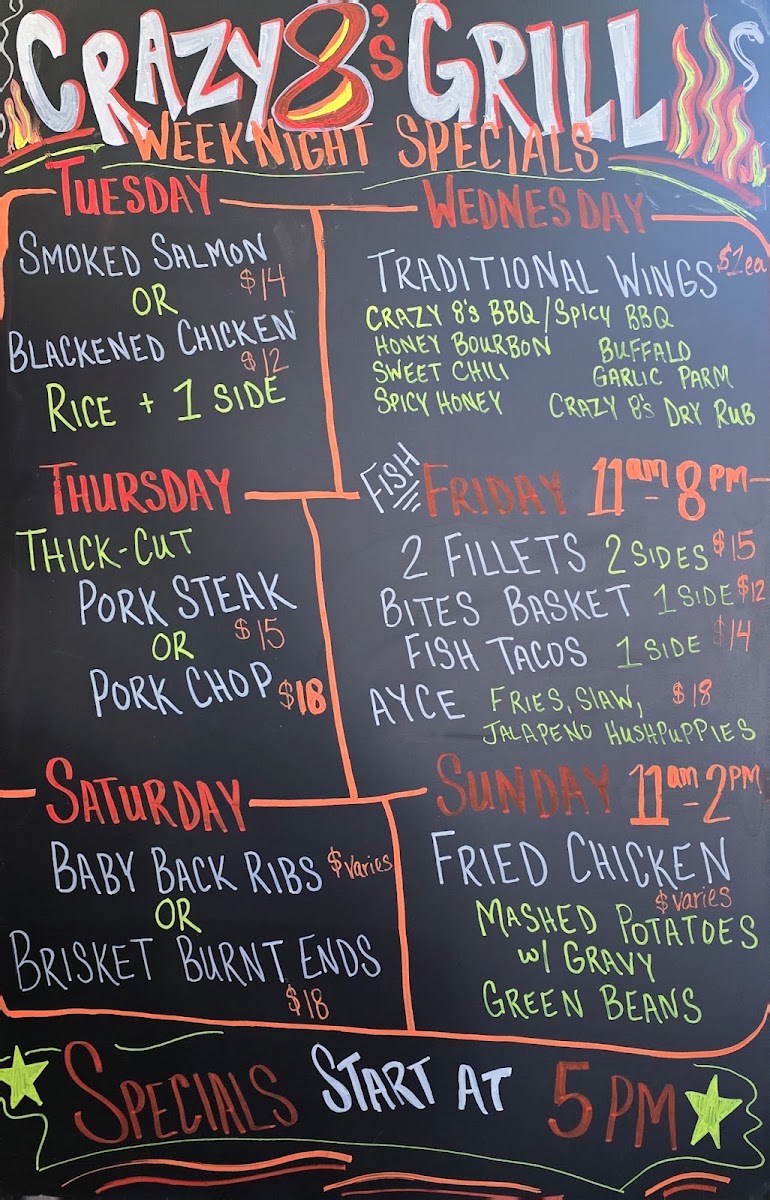 CRAZY 8's GRILL
WEEKNIGHT SPECIALS
TUESDAY
SMOKED SALMON
$14
OR
BLACKENED CHICKEN
$12
RICE + 1 SIDE
WEDNESDAY
TRADITIONAL WINGS $1ea
CRAZY 8's BBQ/SPICY BBQ
HONEY BOURBON BUFFALO
SWEET CHILI GARLIC PARM
SPICY HONEY CRAZY 8's DRY RUB
THURSDAY
THICK-CUT
PORK STEAK
$15
OR
PORK CHOP $18
FISH FRIDAY 11am-8PM
2 FILLETS 2 SIDES $15
BITES BASKET 1 SIDE $12
FISH TACOS 1 SIDE $14
AYCE FRIES, SLAW, $18
JALAPENO HUSHPUPPIES
SATURDAY
BABY BACK RIBS $varies
OR
BRISKET BURNT ENDS
$18
SUNDAY 11am-2PM
FRIED CHICKEN
$varies
MASHED POTATOES
w/ GRAVY
GREEN BEANS
SPECIALS START AT 5PM